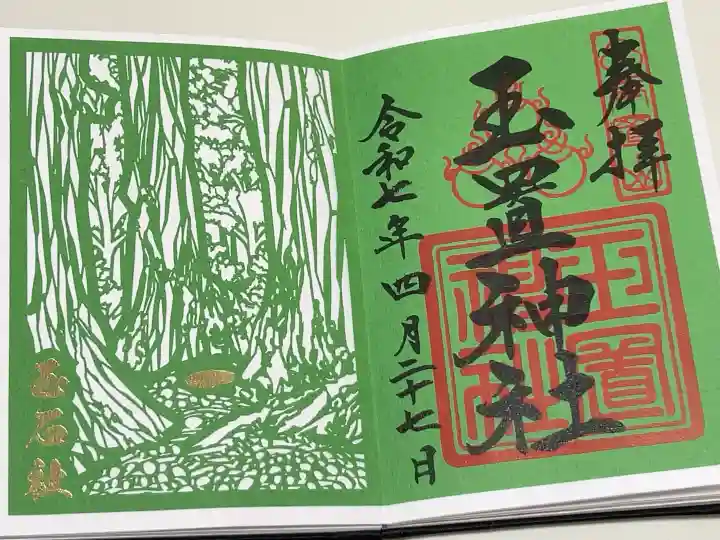 奉拝
玉置神社
令和七年四月二十七日
玉置神社
玉石社